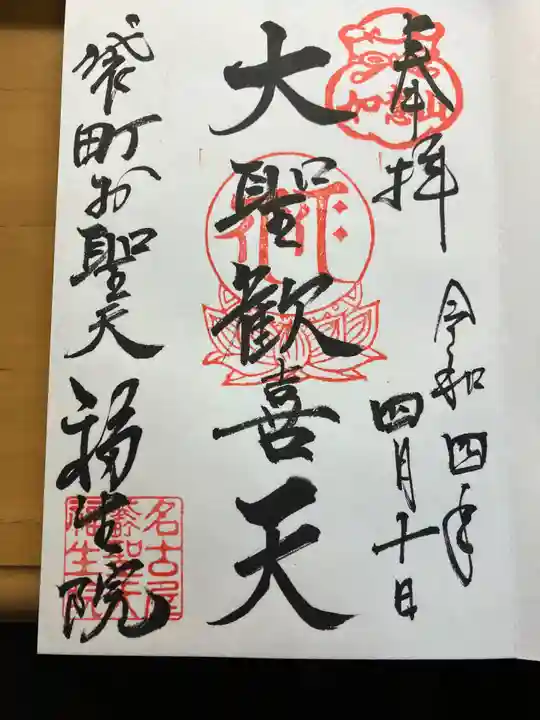 奉拝
令和四年
四月十日
大聖歓喜天
袋町お聖天
福生院
如意山
名古屋
福生院